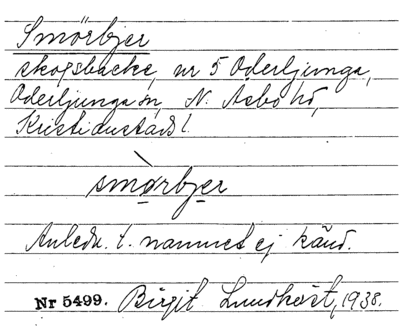 Smörbjer
skogsbacke, nr 5 Oderljunga,
Oderljunga sn, N. Åsbo hd,
Kristianstads l.
smòrbjer
Anledn. t. namnet ej känd.
Nr 5499. Birgit Lundkvist, 1938.